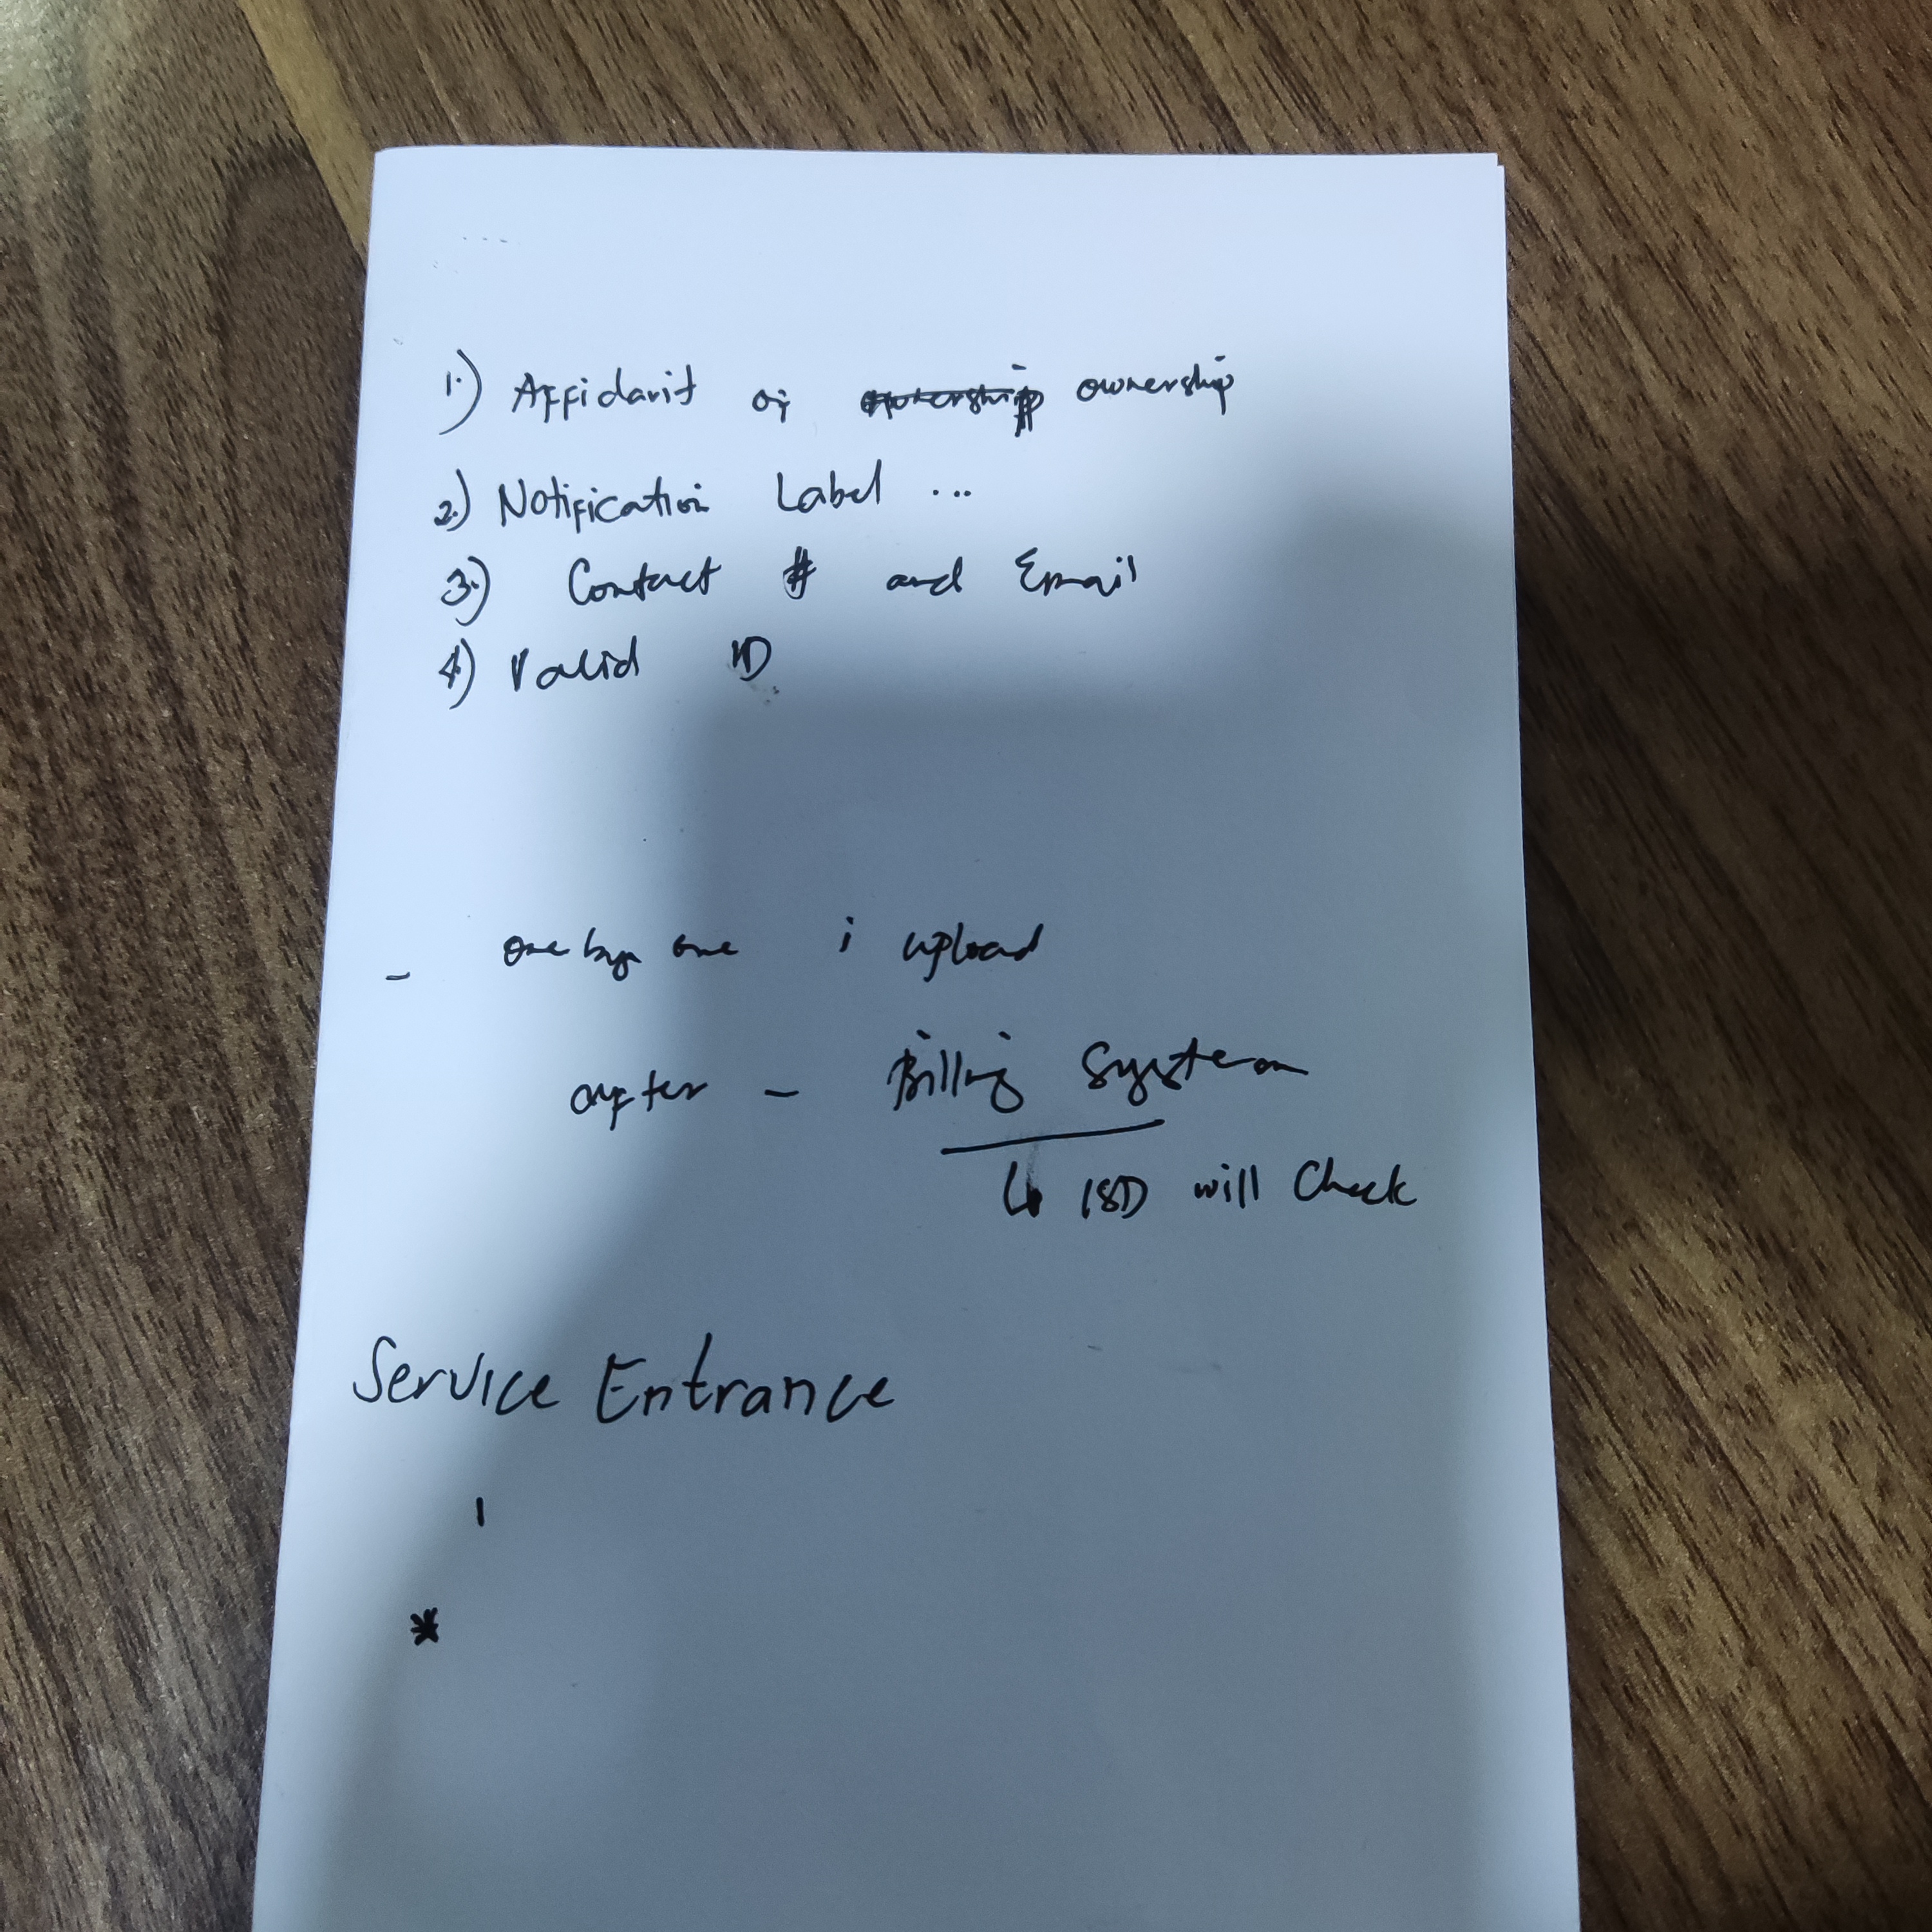 1.) Affidavit of ownership
2.) Notification Label ...
3.) Contact # and Email
4.) Valid ID
- one by one i upload
after - Billing System
↳ ISD will Check
Service Entrance
*